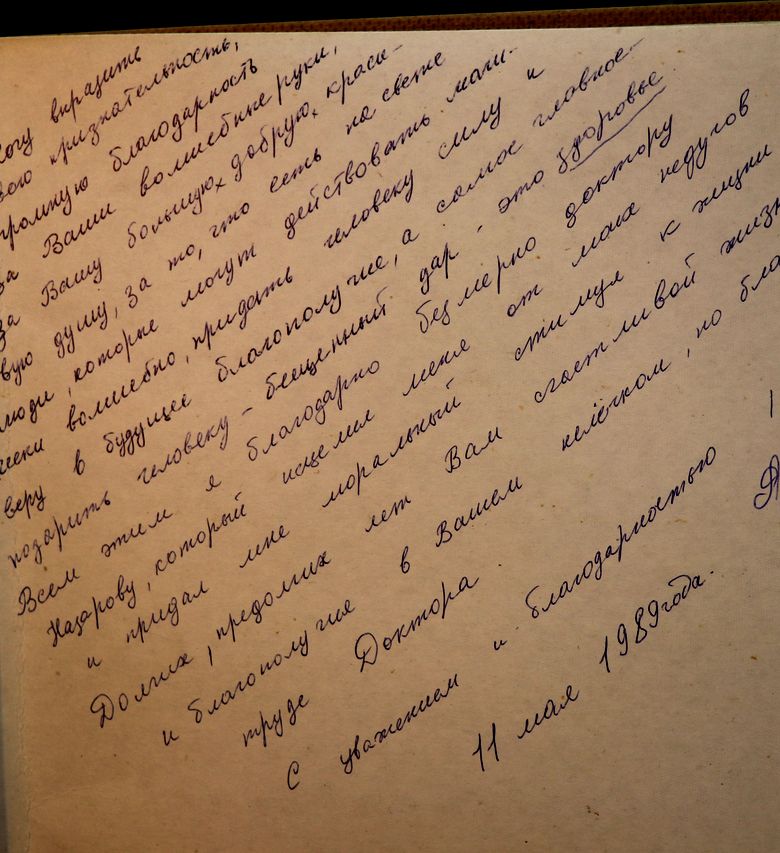 могу выразить
свою признательность,
огромную благодарность
за Ваши волшебные руки,
за Вашу большую, добрую, краси-
вую душу, за то, что есть на свете
люди, которые могут действовать маги-
чески волшебно, придать человеку силу и
веру в будущее благополучие, а самое главное-
подарить человеку - бесценный дар - это здоровье
Всем этим я благодарна безмерно доктору
Назарову, который исцелил меня от моих недугов
и придал мне моральный стимул к жизни
Долгих, предолгих лет Вам счастливой
и благополучия в Вашем нелёгком, но
труде Доктора.
С уважением и благодарностью
11 мая 1989года.